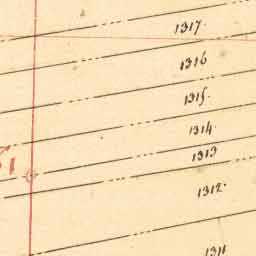 1317.
1316
1315.
1314.
1313
1312.
1311